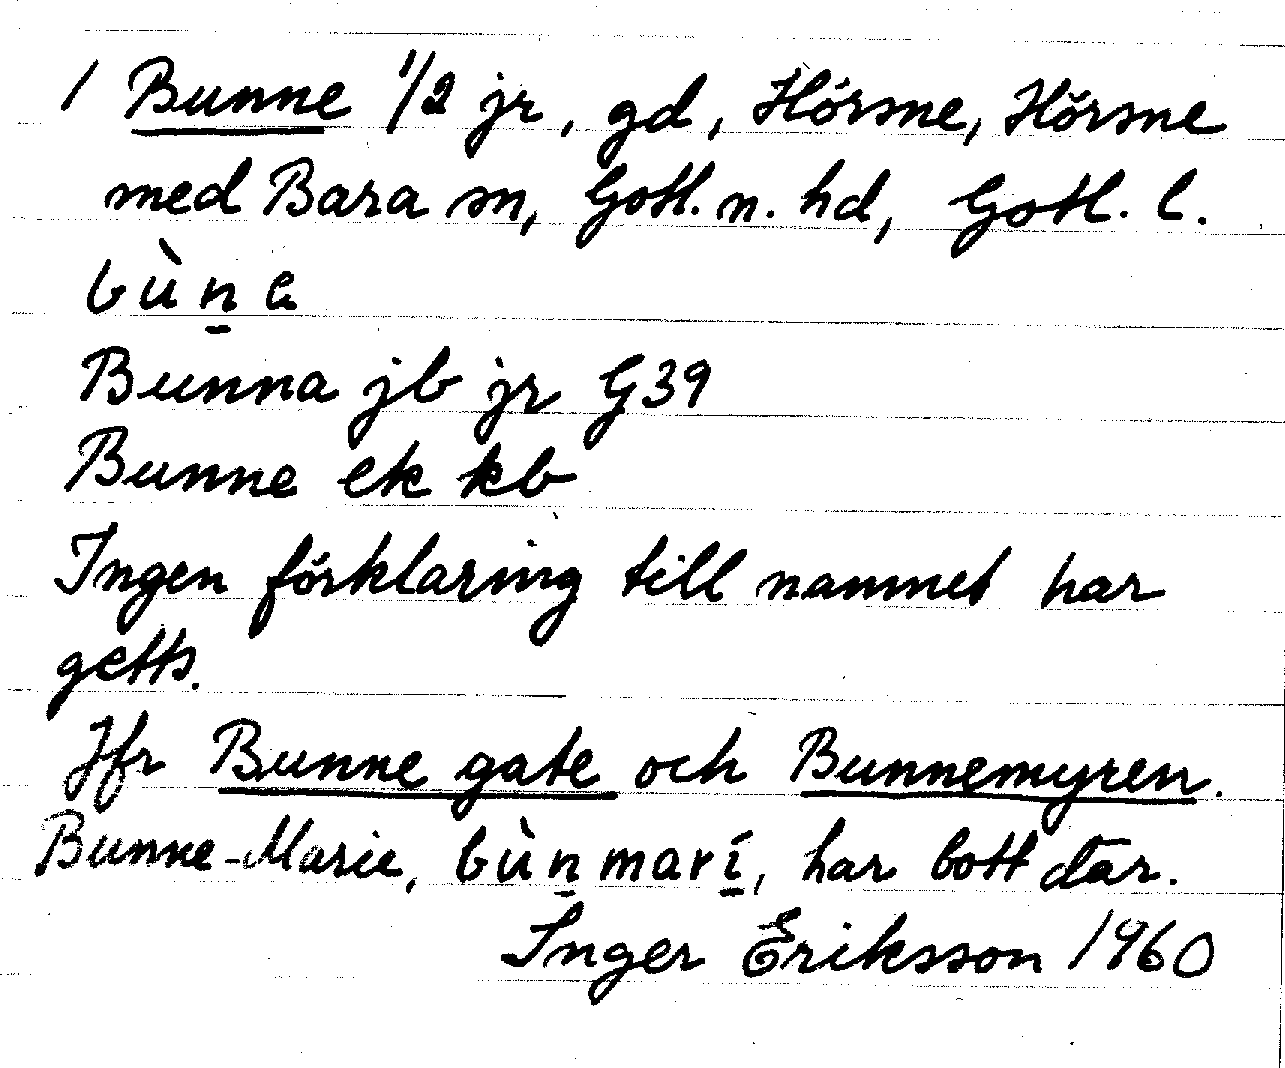 1 Bunne 1/2 jr, gd, Hörsne, Hörsne
med Bara sn, Gotl. n. hd, Gotl. l.
bùn̲a
Bunna jb jr G39
Bunne ek kb
Ingen förklaring till namnet har
getts.
Jfr Bunne gate och Bunnemyren.
Bunne-Marie, bùn̲marí̲, har bott där.
Inger Eriksson 1960